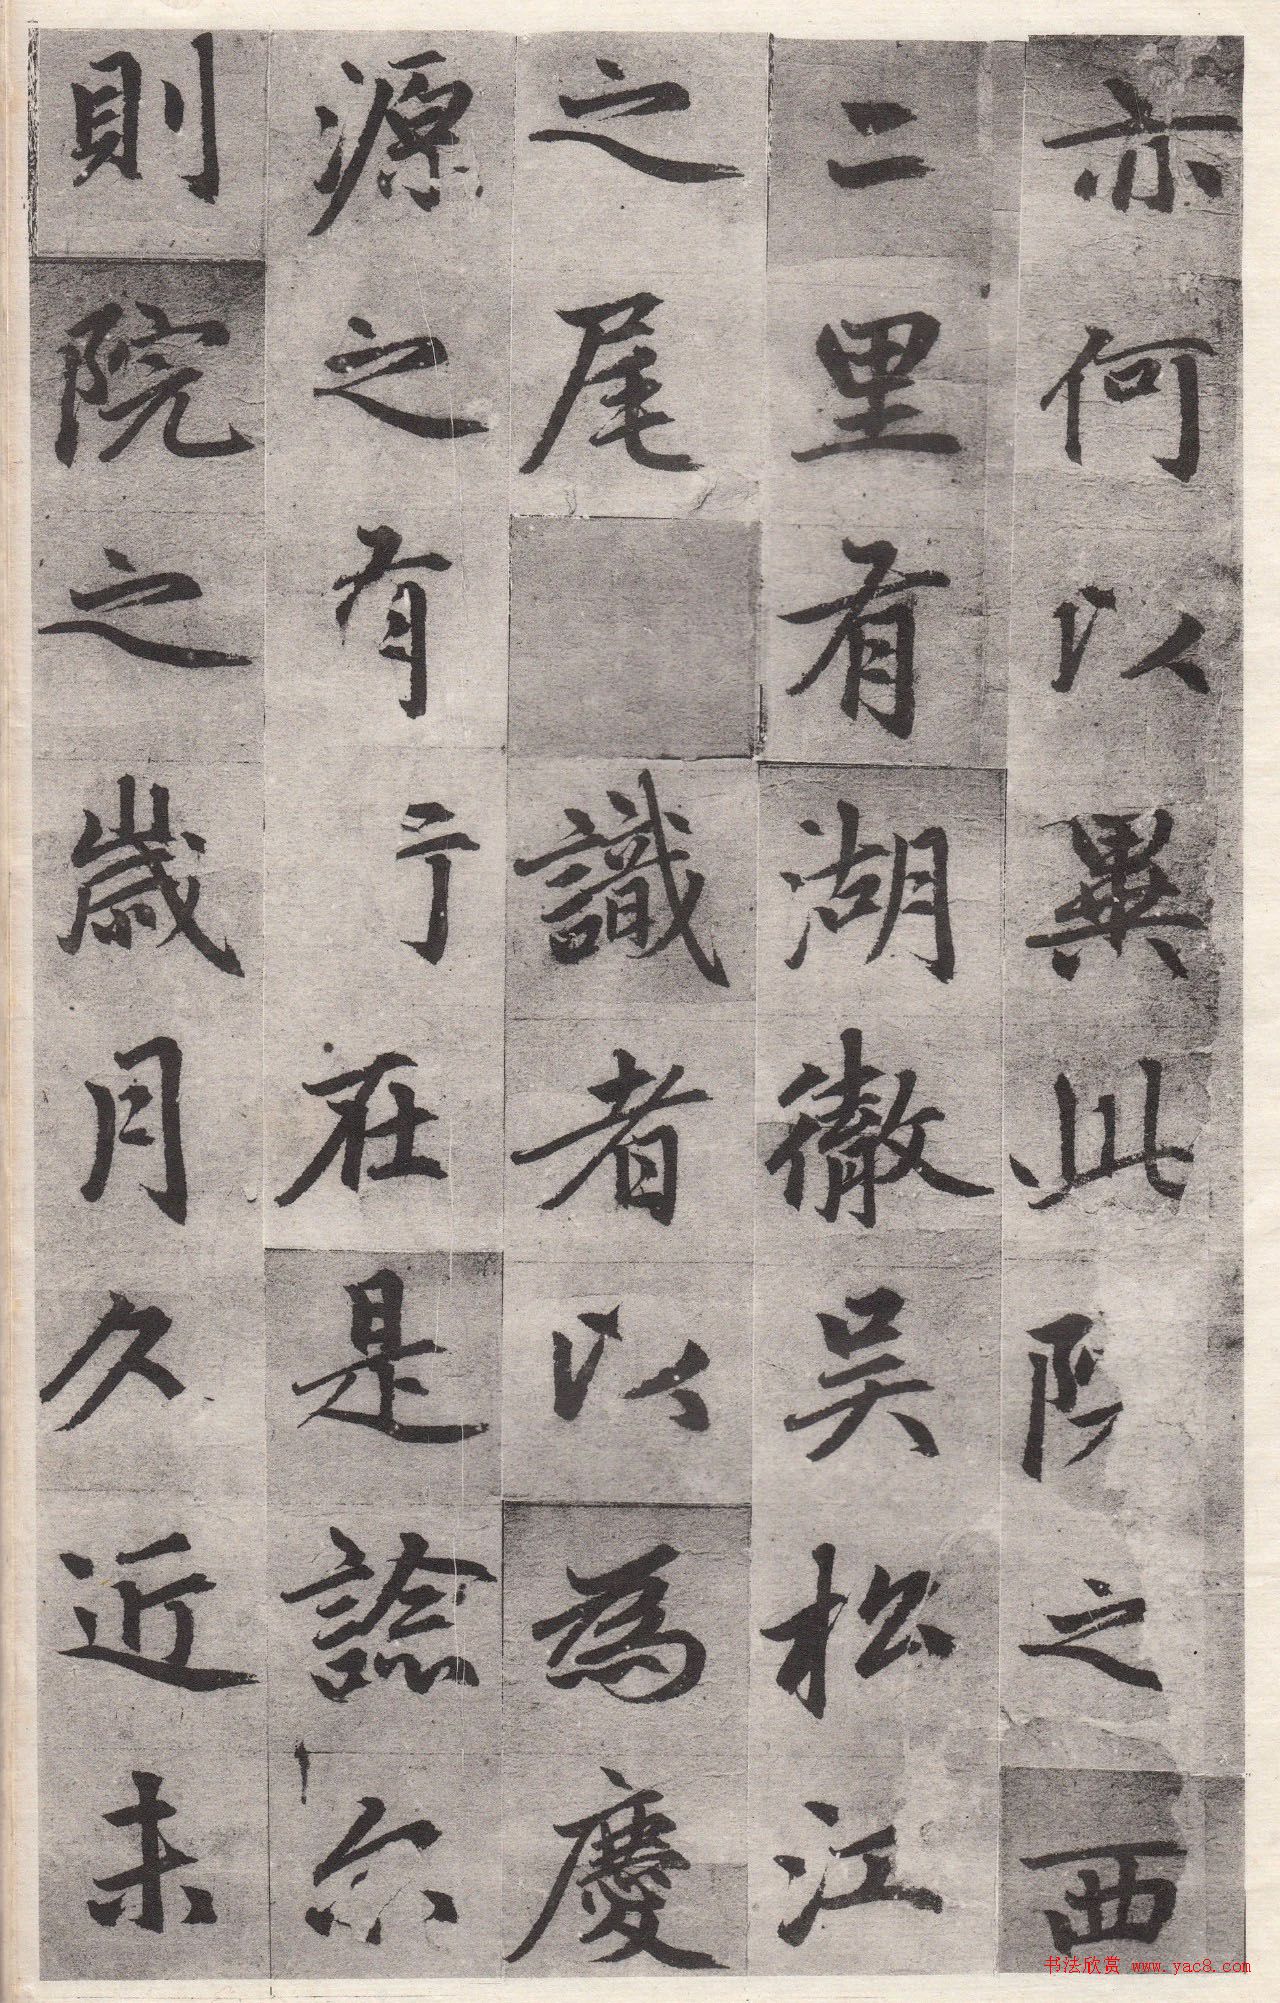 亦何以異此院之西
二里有湖徹吴松江
之尾識者以為慶
源之有亍在是諗尒
則院之歲月久近未
书法欣赏 www.yac8.com